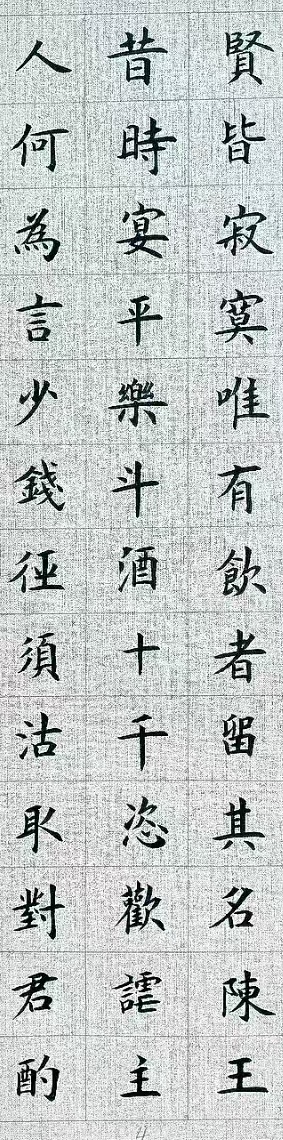 賢皆寂寞唯有飲者留其名陳王
昔時宴平樂斗酒十千恣歡謔主
人何為言少錢徑須沽取對君酌